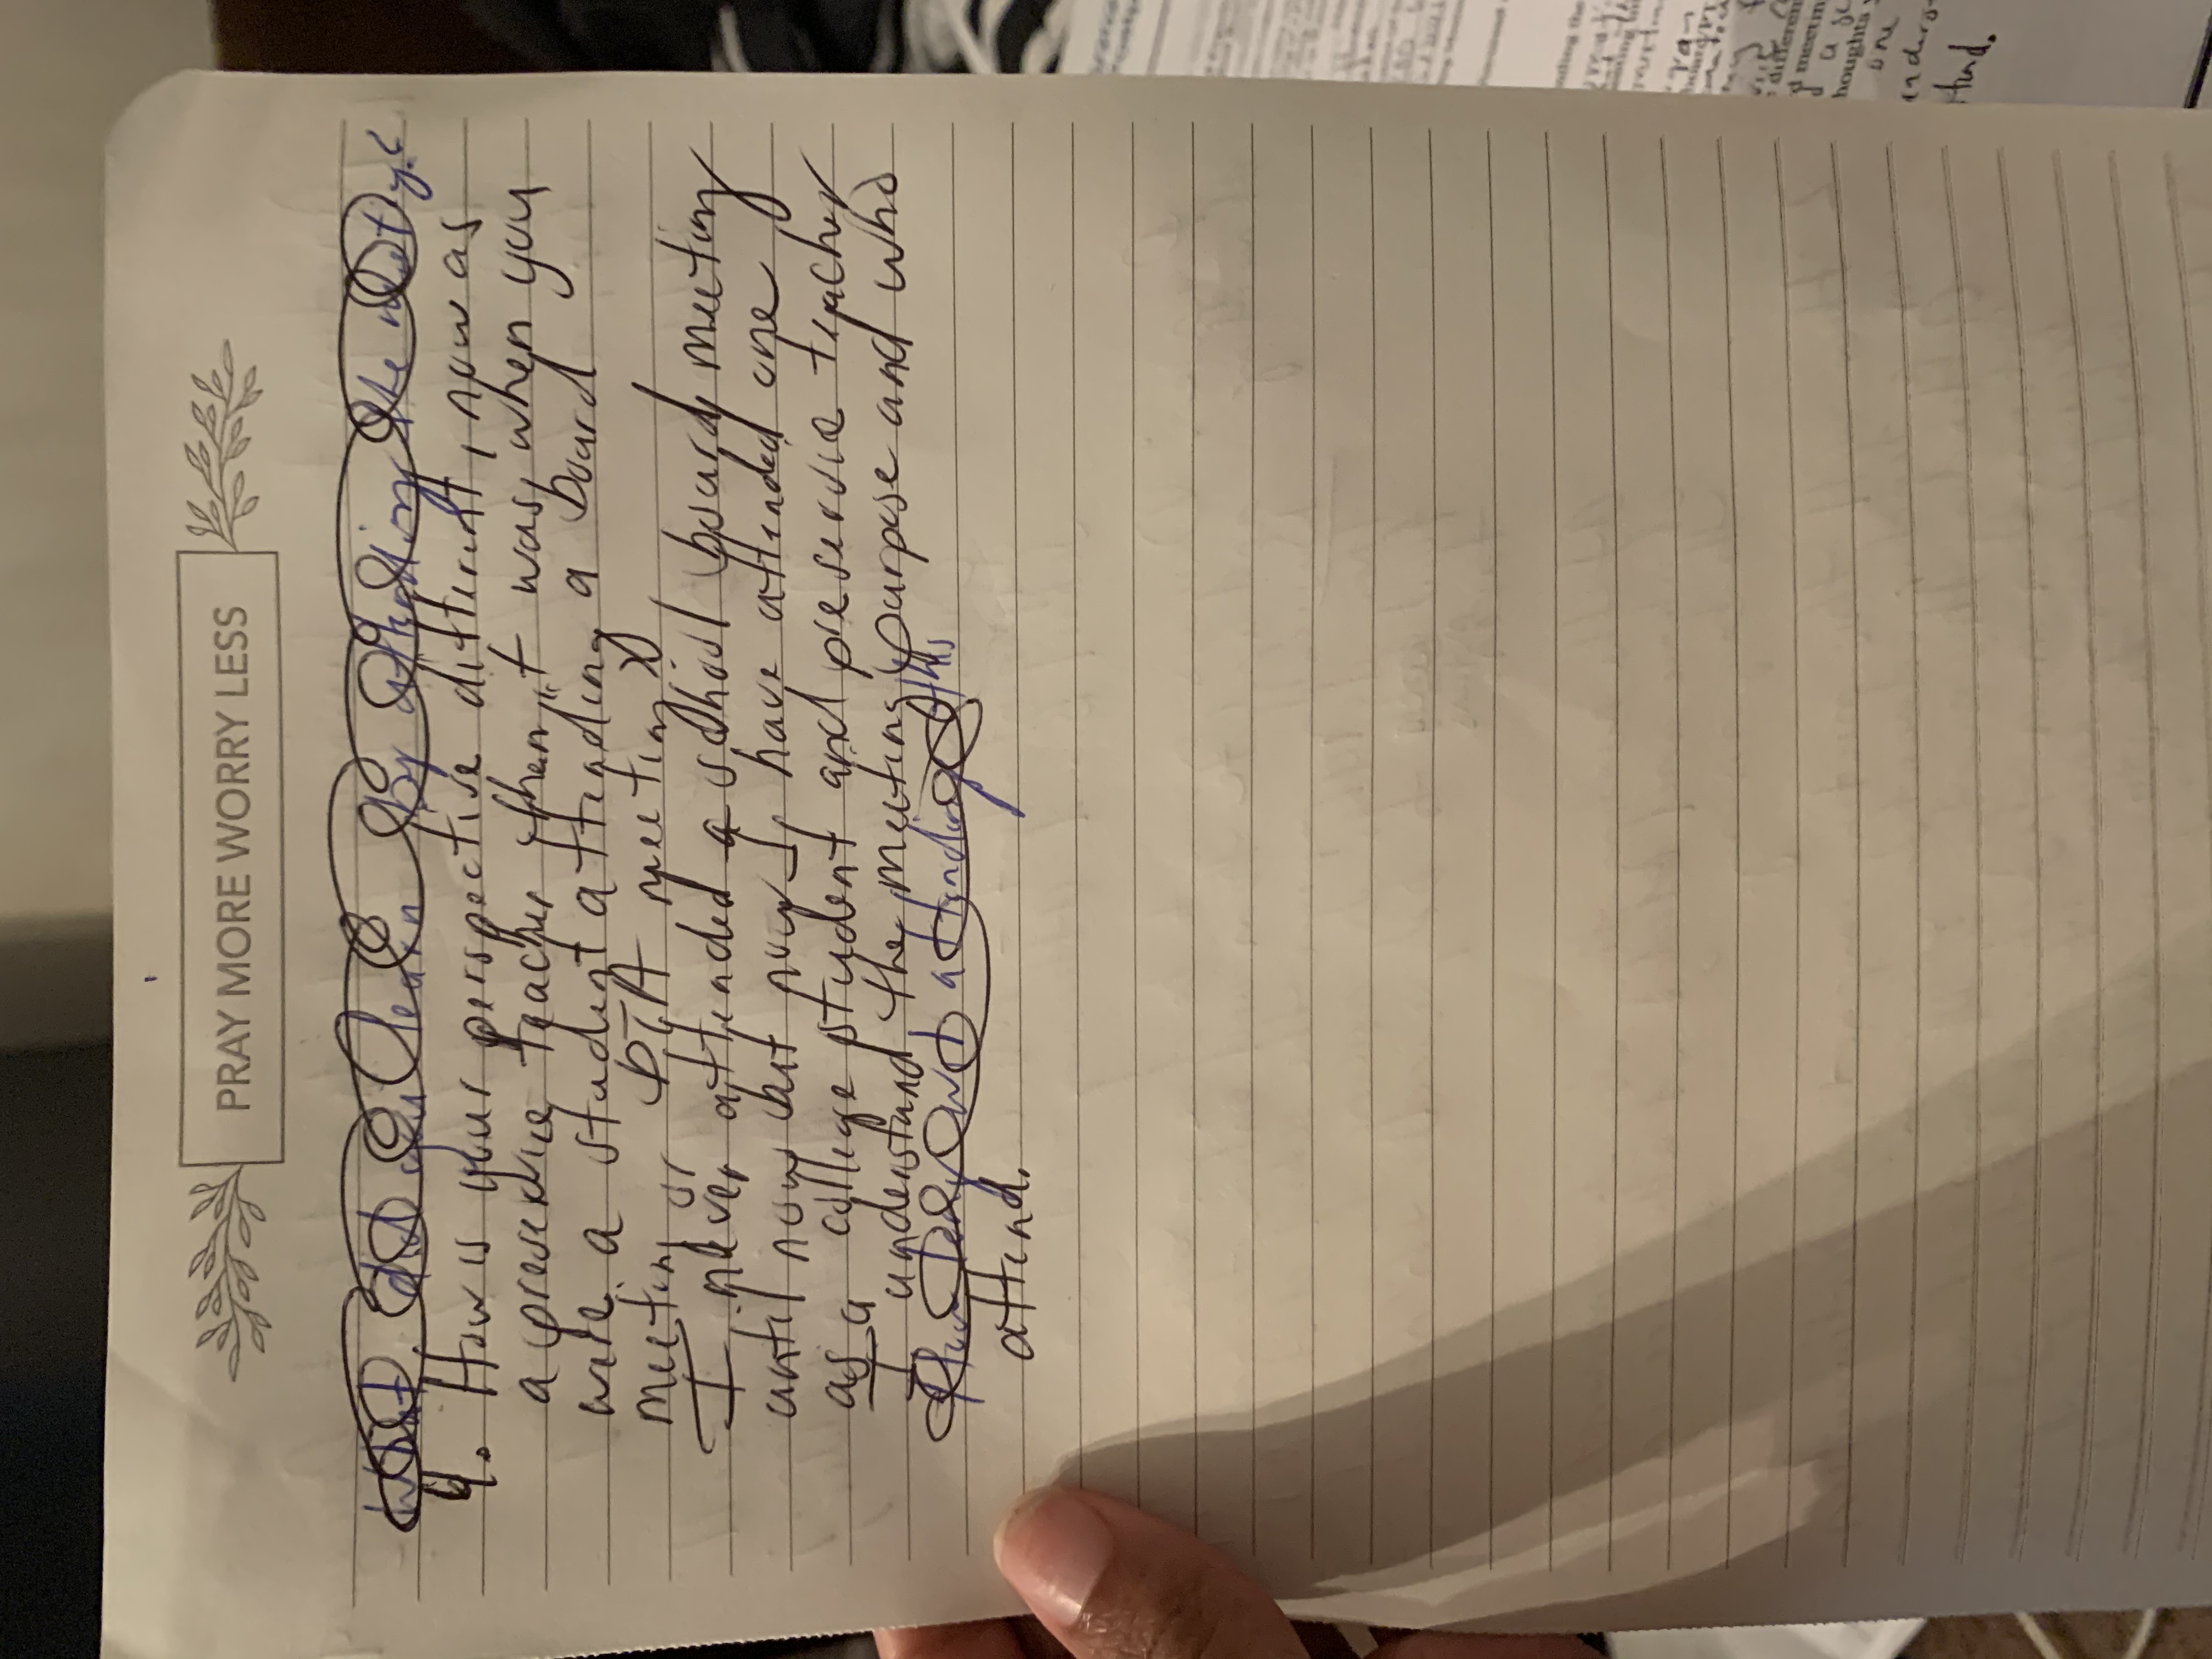 PRAY MORE WORRY LESS
What did you learn by attending the
4. How is your perspective different, now as
a preservice teacher then it was when you
were a student attending a board
meeting or PTA meeting?
I never attended a school board meeting
until now but now I have attended one
as a college student and preservice teacher
I understand the meeting purpose and who
attending this
attend.
ading the
different
meetin
a
houghts
one